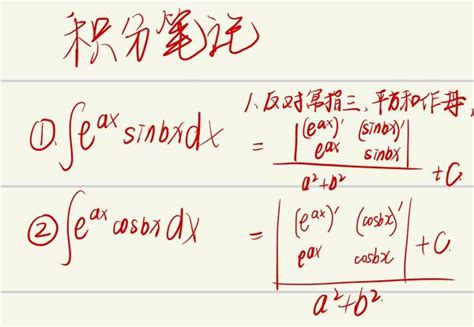 积分笔记
1.反对幂指三,平方和作母,
①.∫e^{ax} sinbx dx = |(e^{ax})' (sinbx)'; e^{ax} sinbx| / (a²+b²) + C.
② ∫e^{ax} cosbx dx = |(e^{ax})' (cosbx)'; e^{ax} cosbx| / (a²+b²) + C.